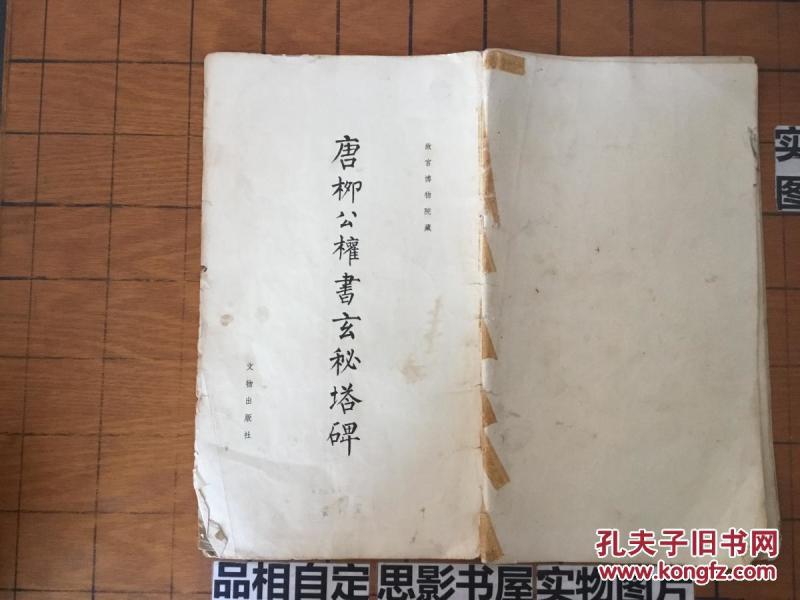 故宮博物院藏
唐柳公權書玄秘塔碑
文物出版社
实
图
孔夫子旧书网
www.kongfz.com
品相自定 思影书屋实物图片